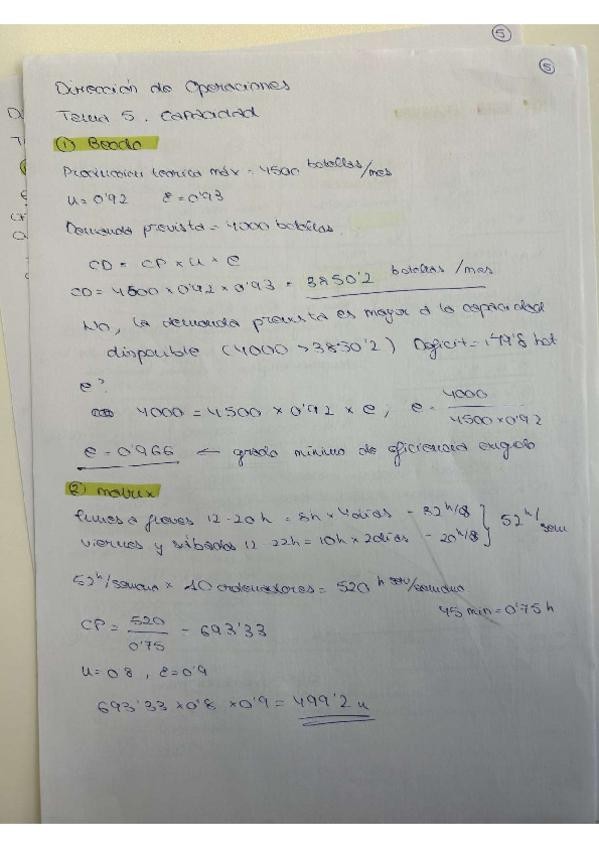 5
5
Dirección de Operaciones
Tema 5. Capacidad
① Beada
Producción teórica máx = 4500 botellas/mes
u = 0'92 e = 0'93
Demanda prevista = 4000 botellas.
CD = CP x u x e
CD = 4500 x 0'92 x 0'93 = 3850'2 botellas / mes
No, la demanda prevista es mayor a la capacidad
disponible (4000 > 3850'2) Déficit = 149'8 bot
e?
4000 = 4500 x 0'92 x e ; e = 4000 / 4500 x 0'92
e = 0'966 ← grado mínimo de eficiencia exigido
② Matrix
lunes a jueves 12-20h = 8h x 4días = 32 h/s } 52 h/sem
viernes y sábados 12-22h = 10h x 2días = 20 h/s
52 h/semana x 10 ordenadores = 520 h /semana
45 min = 0'75 h
CP = 520 / 0'75 = 693'33
u = 0'8 , e = 0'9
693'33 x 0'8 x 0'9 = 499'2 u